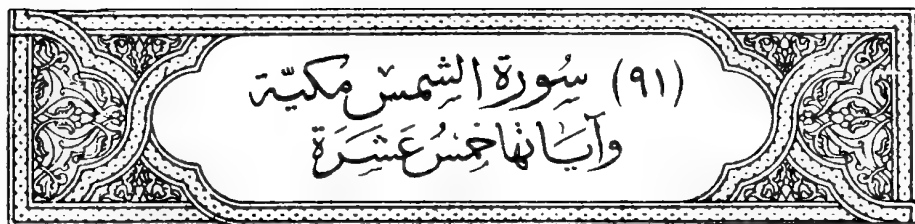 (٩١) سُورَة الشِّمسْ مكيّة
وَآيَاتها خمسُ عَشَرَة